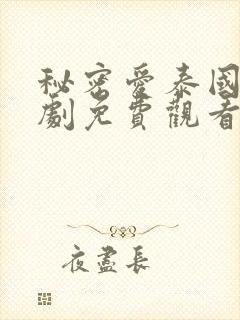 秘密愛泰國
劇免費觀看
夜盡長